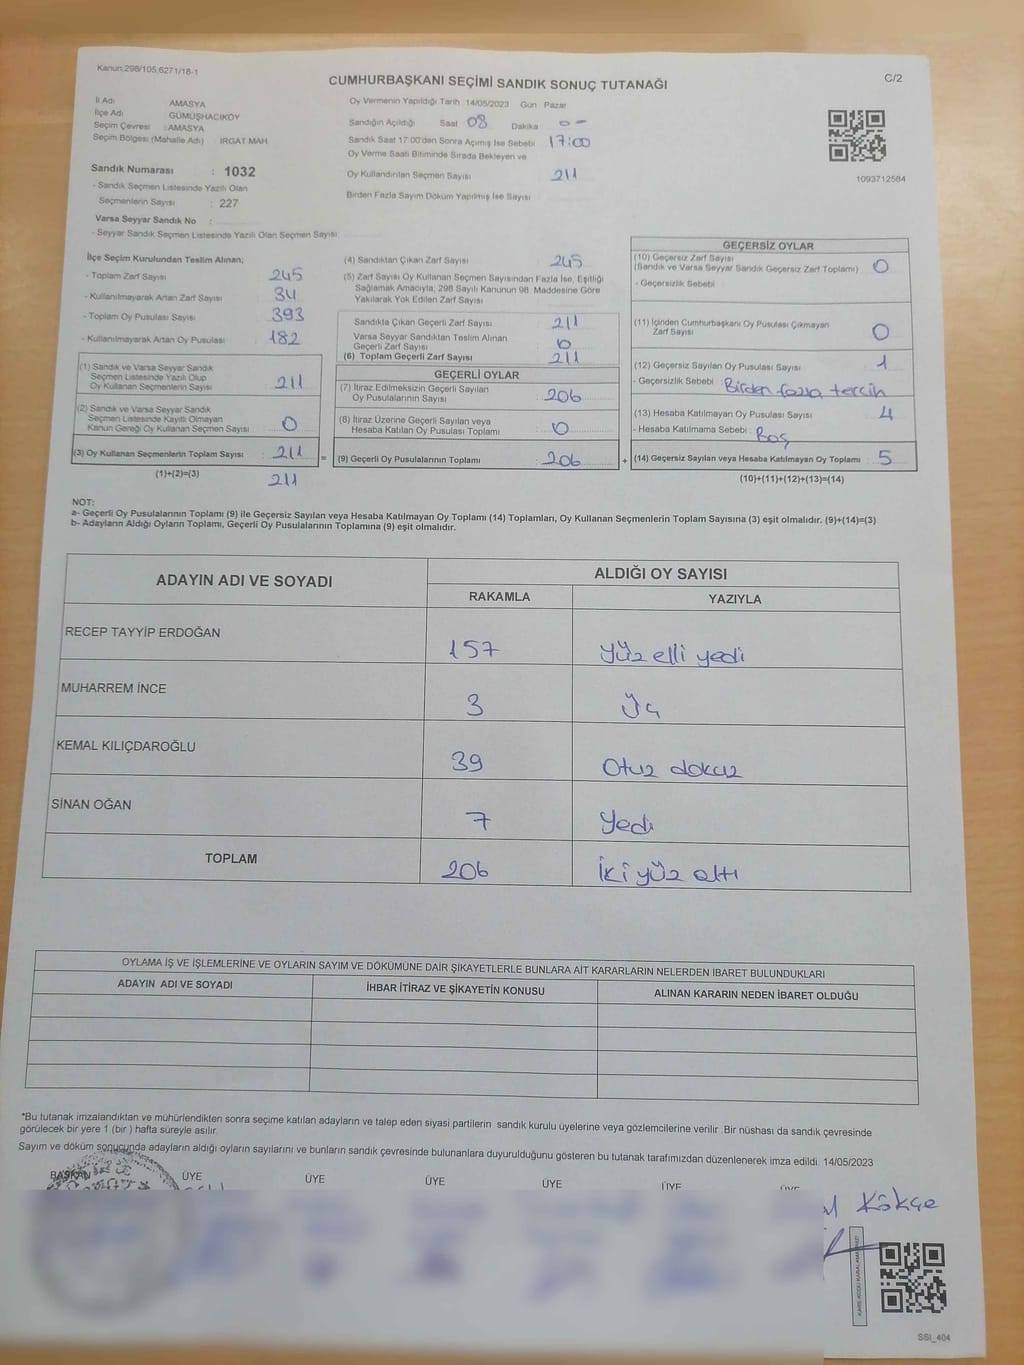 Kanun:298/105;6271/18-1
C/2
CUMHURBAŞKANI SEÇİMİ SANDIK SONUÇ TUTANAĞI
İl Adı AMASYA
İlçe Adı GÜMÜŞHACIKÖY
Seçim Çevresi : AMASYA
Seçim Bölgesi (Mahalle Adı) IRGAT MAH.
Sandık Numarası : 1032
- Sandık Seçmen Listesinde Yazılı Olan
Seçmenlerin Sayısı : 227
Varsa Seyyar Sandık No :
- Seyyar Sandık Seçmen Listesinde Yazılı Olan Seçmen Sayısı
Oy Vermenin Yapıldığı Tarih 14/05/2023 Gün Pazar
Sandığın Açıldığı Saat 08 Dakika 0-
Sandık Saat 17:00'den Sonra Açımış İse Sebebi 17:00
Oy Verme Saati Bitiminde Sırada Bekleyen ve
Oy Kullandırılan Seçmen Sayısı 211
Birden Fazla Sayım Döküm Yapılmış İse Sayısı
1093712584
İlçe Seçim Kurulundan Teslim Alınan;
- Toplam Zarf Sayısı : 245
- Kullanılmayarak Artan Zarf Sayısı : 34
- Toplam Oy Pusulası Sayısı : 393
- Kullanılmayarak Artan Oy Pusulası : 182
(1) Sandık ve Varsa Seyyar Sandık
Seçmen Listesinde Yazılı Olup
Oy Kullanan Seçmenlerin Sayısı : 211
(2) Sandık ve Varsa Seyyar Sandık
Seçmen Listesinde Kayıtlı Olmayan
Kanun Gereği Oy Kullanan Seçmen Sayısı : 0
(3) Oy Kullanan Seçmenlerin Toplam Sayısı : 211 =
(1)+(2)=(3) 211
(4) Sandıktan Çıkan Zarf Sayısı : 245
(5) Zarf Sayısı Oy Kullanan Seçmen Sayısından Fazla İse, Eşitliği
Sağlamak Amacıyla; 298 Sayılı Kanunun 98. Maddesine Göre
Yakılarak Yok Edilen Zarf Sayısı
Sandıkta Çıkan Geçerli Zarf Sayısı : 211
Varsa Seyyar Sandıktan Teslim Alınan
Geçerli Zarf Sayısı : 0
(6) Toplam Geçerli Zarf Sayısı : 211
GEÇERLİ OYLAR
(7) İtiraz Edilmeksizin Geçerli Sayılan
Oy Pusulalarının Sayısı : 206
(8) İtiraz Üzerine Geçerli Sayılan veya
Hesaba Katılan Oy Pusulası Toplamı : 0
(9) Geçerli Oy Pusulalarının Toplamı : 206 +
GEÇERSİZ OYLAR
(10) Geçersiz Zarf Sayısı
(Sandık ve Varsa Seyyar Sandık Geçersiz Zarf Toplamı) : 0
- Geçersizlik Sebebi :
(11) İçinden Cumhurbaşkanı Oy Pusulası Çıkmayan
Zarf Sayısı : 0
(12) Geçersiz Sayılan Oy Pusulası Sayısı : 1
- Geçersizlik Sebebi : Birden fazla tercih
(13) Hesaba Katılmayan Oy Pusulası Sayısı : 4
- Hesaba Katılmama Sebebi : Boş
(14) Geçersiz Sayılan veya Hesaba Katılmayan Oy Toplamı : 5
(10)+(11)+(12)+(13)=(14)
NOT:
a- Geçerli Oy Pusulalarının Toplamı (9) ile Geçersiz Sayılan veya Hesaba Katılmayan Oy Toplamı (14) Toplamları, Oy Kullanan Seçmenlerin Toplam Sayısına (3) eşit olmalıdır. (9)+(14)=(3)
b- Adayların Aldığı Oyların Toplamı, Geçerli Oy Pusulalarının Toplamına (9) eşit olmalıdır.
ADAYIN ADI VE SOYADI ALDIĞI OY SAYISI
RAKAMLA YAZIYLA
RECEP TAYYİP ERDOĞAN 157 Yüz elli yedi
MUHARREM İNCE 3 Üç
KEMAL KILIÇDAROĞLU 39 Otuz dokuz
SİNAN OĞAN 7 Yedi
TOPLAM 206 İki yüz altı
OYLAMA İŞ VE İŞLEMLERİNE VE OYLARIN SAYIM VE DÖKÜMÜNE DAİR ŞİKAYETLERLE BUNLARA AİT KARARLARIN NELERDEN İBARET BULUNDUKLARI
ADAYIN ADI VE SOYADI İHBAR İTİRAZ VE ŞİKAYETİN KONUSU ALINAN KARARIN NEDEN İBARET OLDUĞU
*Bu tutanak imzalandıktan ve mühürlendikten sonra seçime katılan adayların ve talep eden siyasi partilerin sandık kurulu üyelerine veya gözlemcilerine verilir .Bir nüshası da sandık çevresinde
görülecek bir yere 1 (bir ) hafta süreyle asılır.
Sayım ve döküm sonucunda adayların aldığı oyların sayılarını ve bunların sandık çevresinde bulunanlara duyurulduğunu gösteren bu tutanak tarafımızdan düzenlenerek imza edildi. 14/05/2023
BAŞKAN ÜYE ÜYE ÜYE ÜYE ÜYE
Kökçe
SSI_404